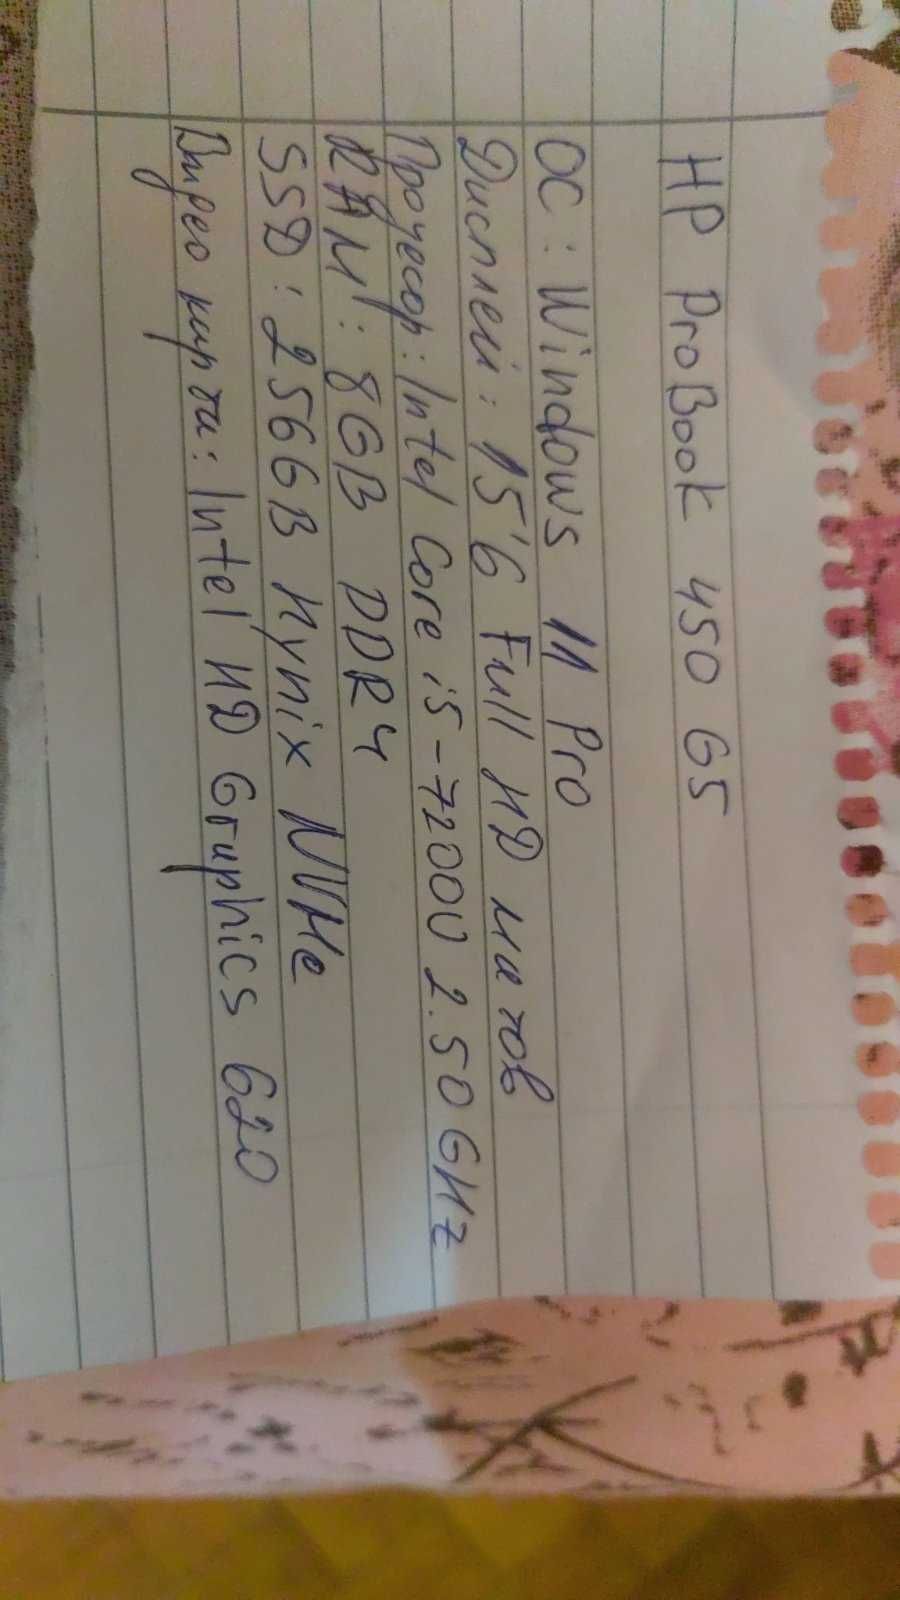 HP ProBook 450 G5
ОС: Windows 11 Pro
Дисплей: 15'6 Full HD матов
Процесор: Intel Core i5-7200U 2.50GHz
RAM: 8GB DDR4
SSD: 256GB Hynix NVMe
Видео карта: Intel HD Graphics 620